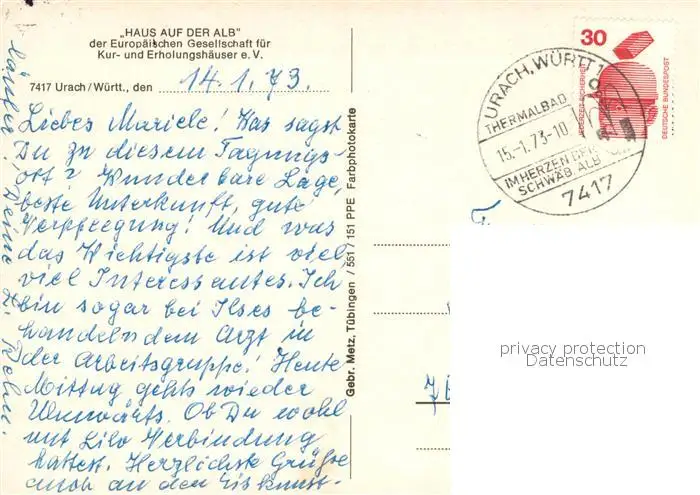 „HAUS AUF DER ALB"
der Europäischen Gesellschaft für
Kur- und Erholungshäuser e. V.
7417 Urach / Württ., den 14.1.73.
Liebes Mariele! Was sagst
Du zu diesem Tagungs-
ort? Wunderbare Lage,
beste Unterkunft, gute
Verpflegung! Und was
das Wichtigste ist viel
viel Interessantes. Ich
bin sogar bei Ilses be-
handelndem Arzt in
der Arbeitsgruppe! Heute
Mittag gehts wieder
Ulmwärts. Ob Du wohl
mit Lilo Verbindung
hattest. Herzlichste Grüße
auch an den Eiskunst-
läufer! Deine
Gebr. Metz, Tübingen / 551 / 151 PPE Farbphotokarte
30
JEDERZEIT SICHERHEIT
DEUTSCHE BUNDESPOST
URACH, WÜRTT 1
THERMALBAD
15.-1.73-10
IM HERZEN DER
SCHWÄB. ALB
7417
privacy protection
Datenschutz